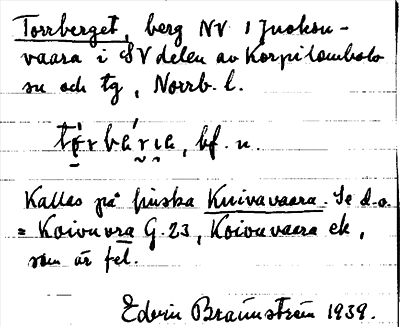 Torrberget, berg NV i Juoksu-
vaara i SV delen av Korpilombolo
sn och tg, Norrb. l.
tǫ́rbærı̯a, bf. n.
Kallas på finska Kuivavaara. Se d.o.
= Koivuvra G. 23, Koivuvaara ek,
som är fel.
Edvin Brännström 1939.